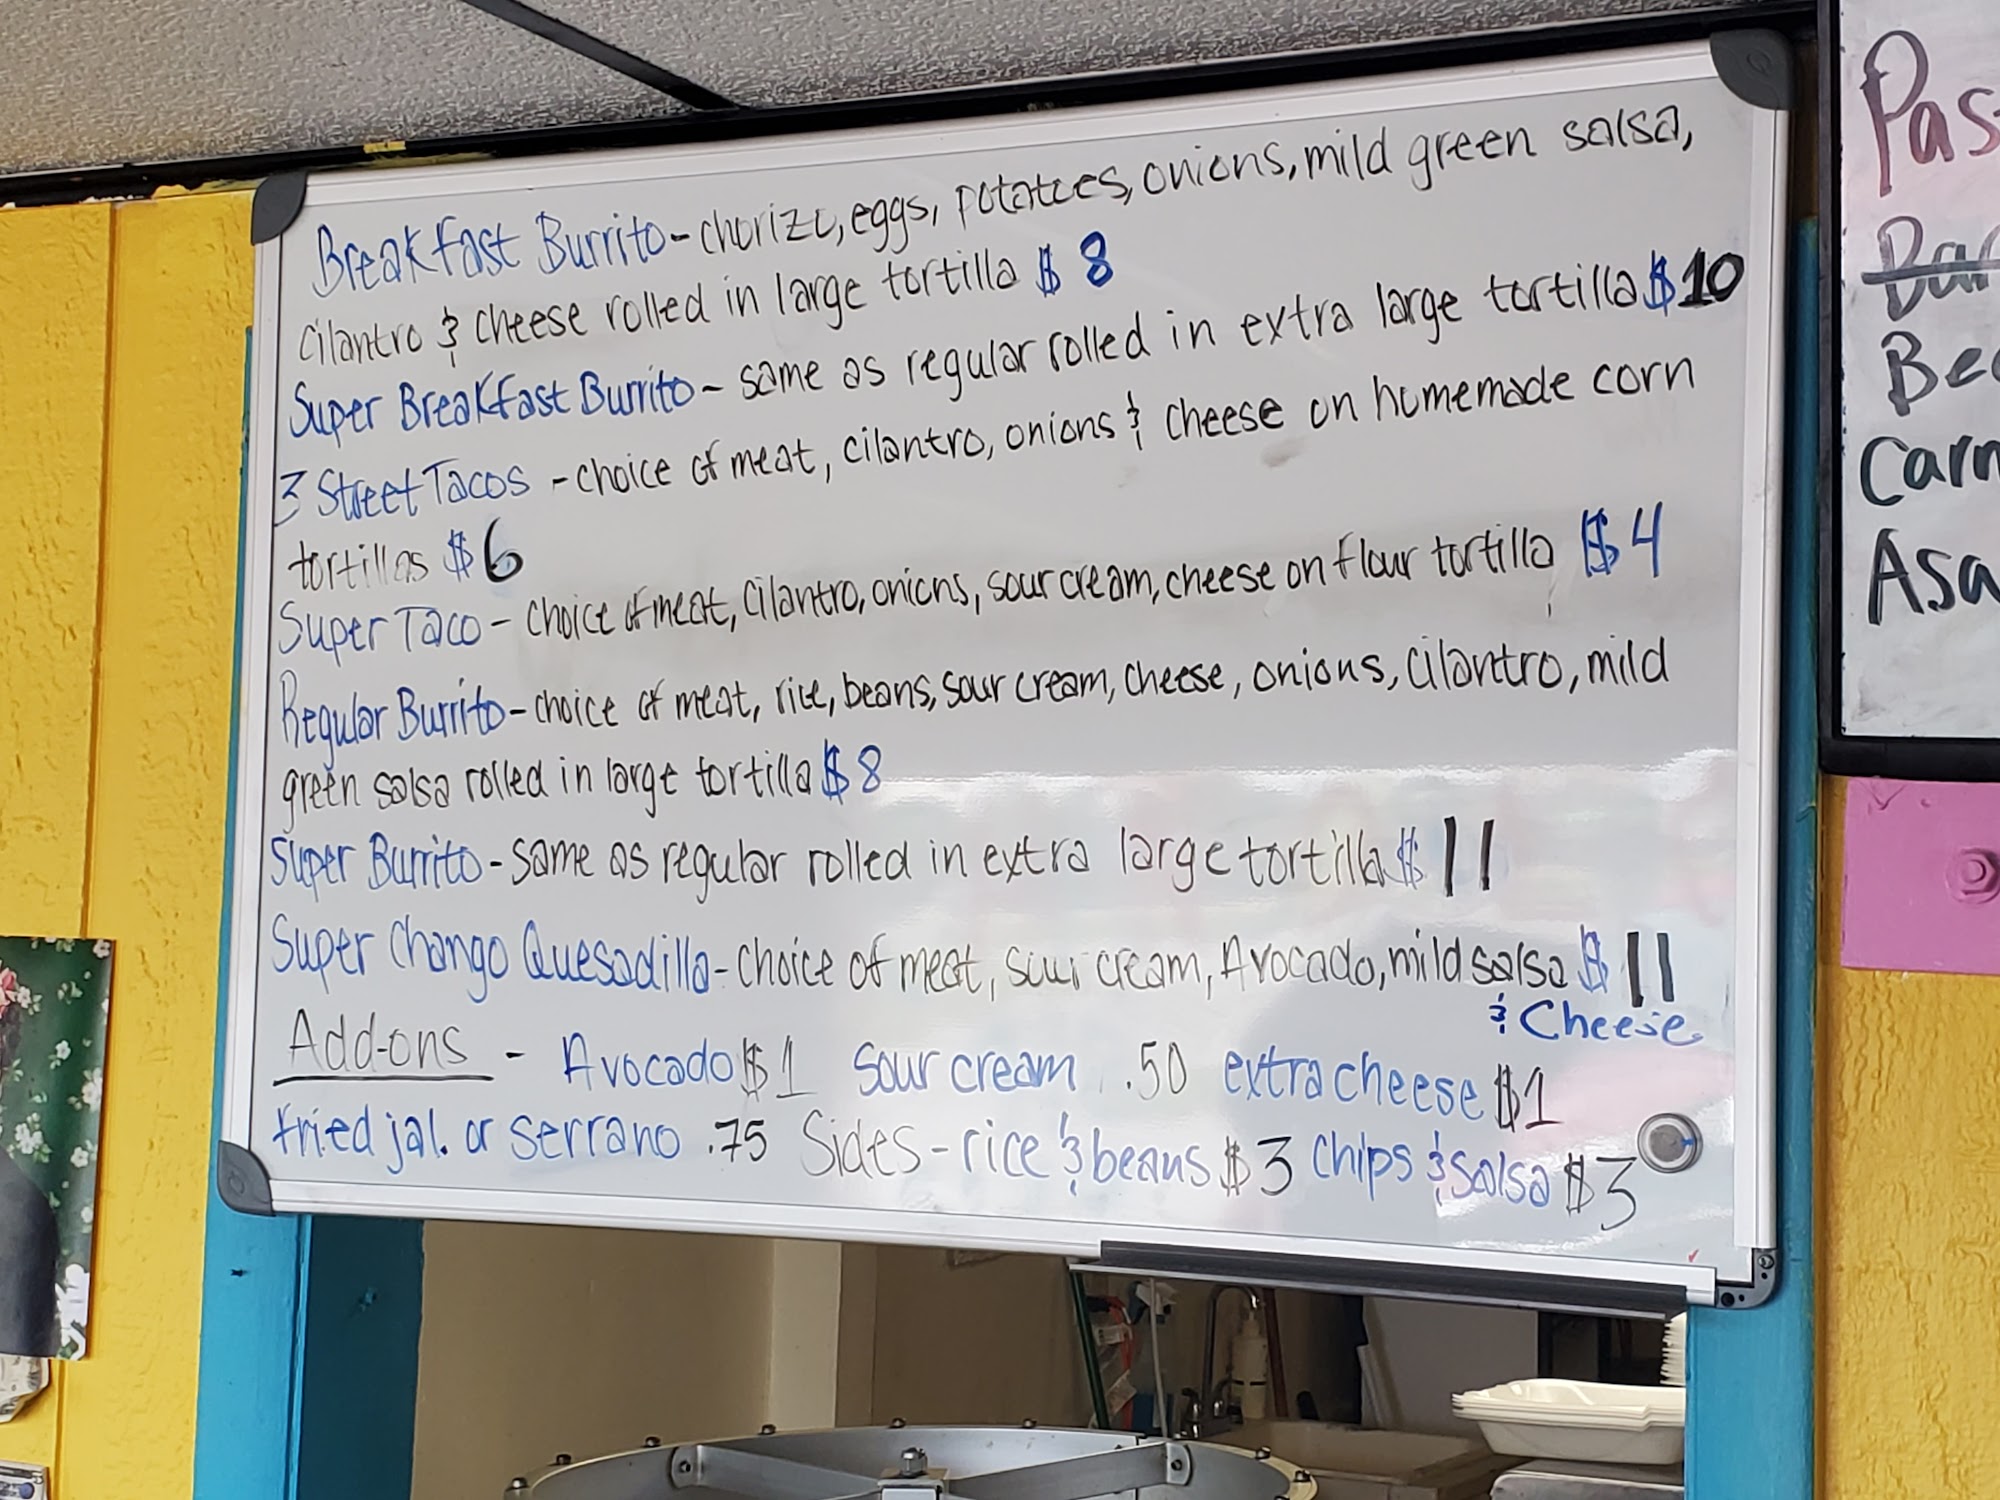 Breakfast Burrito - chorizo, eggs, potatoes, onions, mild green salsa,
cilantro & cheese rolled in large tortilla $8
Super Breakfast Burrito - same as regular rolled in extra large tortilla $10
3 Street Tacos - choice of meat, cilantro, onions & cheese on homemade corn
tortillas $6
Super Taco - choice of meat, cilantro, onions, sour cream, cheese on flour tortilla $4
Regular Burrito - choice of meat, rice, beans, sour cream, cheese, onions, cilantro, mild
green salsa rolled in large tortilla $8
Super Burrito - same as regular rolled in extra large tortilla $11
Super Chango Quesadilla - choice of meat, sour cream, Avocado, mild salsa $11
& Cheese
Add-ons - Avocado $1 sour cream .50 extra cheese $1
fried jal. or serrano .75 Sides - rice & beans $3 chips & salsa $3
Pas
Bar
Bee
Carn
Asa